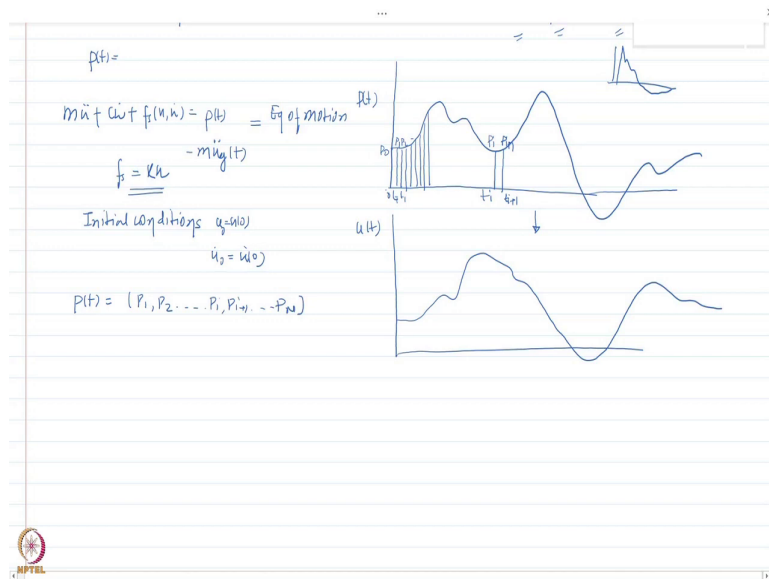 p(t)=
mü + cu̇ + fs(u,u̇) = p(t) = Eq of motion
-müg(t)
fs = ku
Initial conditions u0=u(0)
u̇0 = u̇(0)
p(t) = (P1, P2 .... Pi, Pi+1 .... PN)
p(t)
P0 P1 P2
Pi Pi+1
0 t1 t2
ti ti+1
u(t)
NPTEL